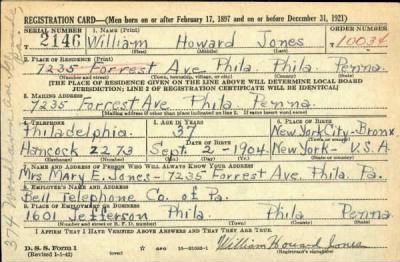 REGISTRATION CARD—(Men born on or after February 17, 1897 and on or before December 31, 1921)
SERIAL NUMBER 1. NAME (Print) ORDER NUMBER
2146 William Howard Jones 10034
(First) (Middle) (Last)
2. PLACE OF RESIDENCE (Print)
7235 Forrest Ave Phila. Phila. Penna
(Number and street) (Town, township, village, or city) (County) (State)
[THE PLACE OF RESIDENCE GIVEN ON THE LINE ABOVE WILL DETERMINE LOCAL BOARD
JURISDICTION; LINE 2 OF REGISTRATION CERTIFICATE WILL BE IDENTICAL]
3. MAILING ADDRESS
7235 Forrest Ave Phila. Penna.
4. TELEPHONE 5. AGE IN YEARS 6. PLACE OF BIRTH
Philadelphia 37 New York City-Bronx
DATE OF BIRTH (Town or county)
Hancock 2273 Sept. 2-1904 New York-U.S.A
(Exchange) (Number) (Mo.) (Day) (Yr.) (State or country)
7. NAME AND ADDRESS OF PERSON WHO WILL ALWAYS KNOW YOUR ADDRESS
Mrs Mary E. Jones-7235 Forrest Ave. Phila. Pa.
8. EMPLOYER'S NAME AND ADDRESS
Bell Telephone Co. of Pa.
9. PLACE OF EMPLOYMENT OR BUSINESS
1601 Jefferson Phila. Phila Penna
(Number and street or R. F. D. number) (Town) (County) (State)
I AFFIRM THAT I HAVE VERIFIED ABOVE ANSWERS AND THAT THEY ARE TRUE.
D. S. S. Form 1
(Revised 1-5-42) GPO
William Howard Jones
(Registrant's signature)